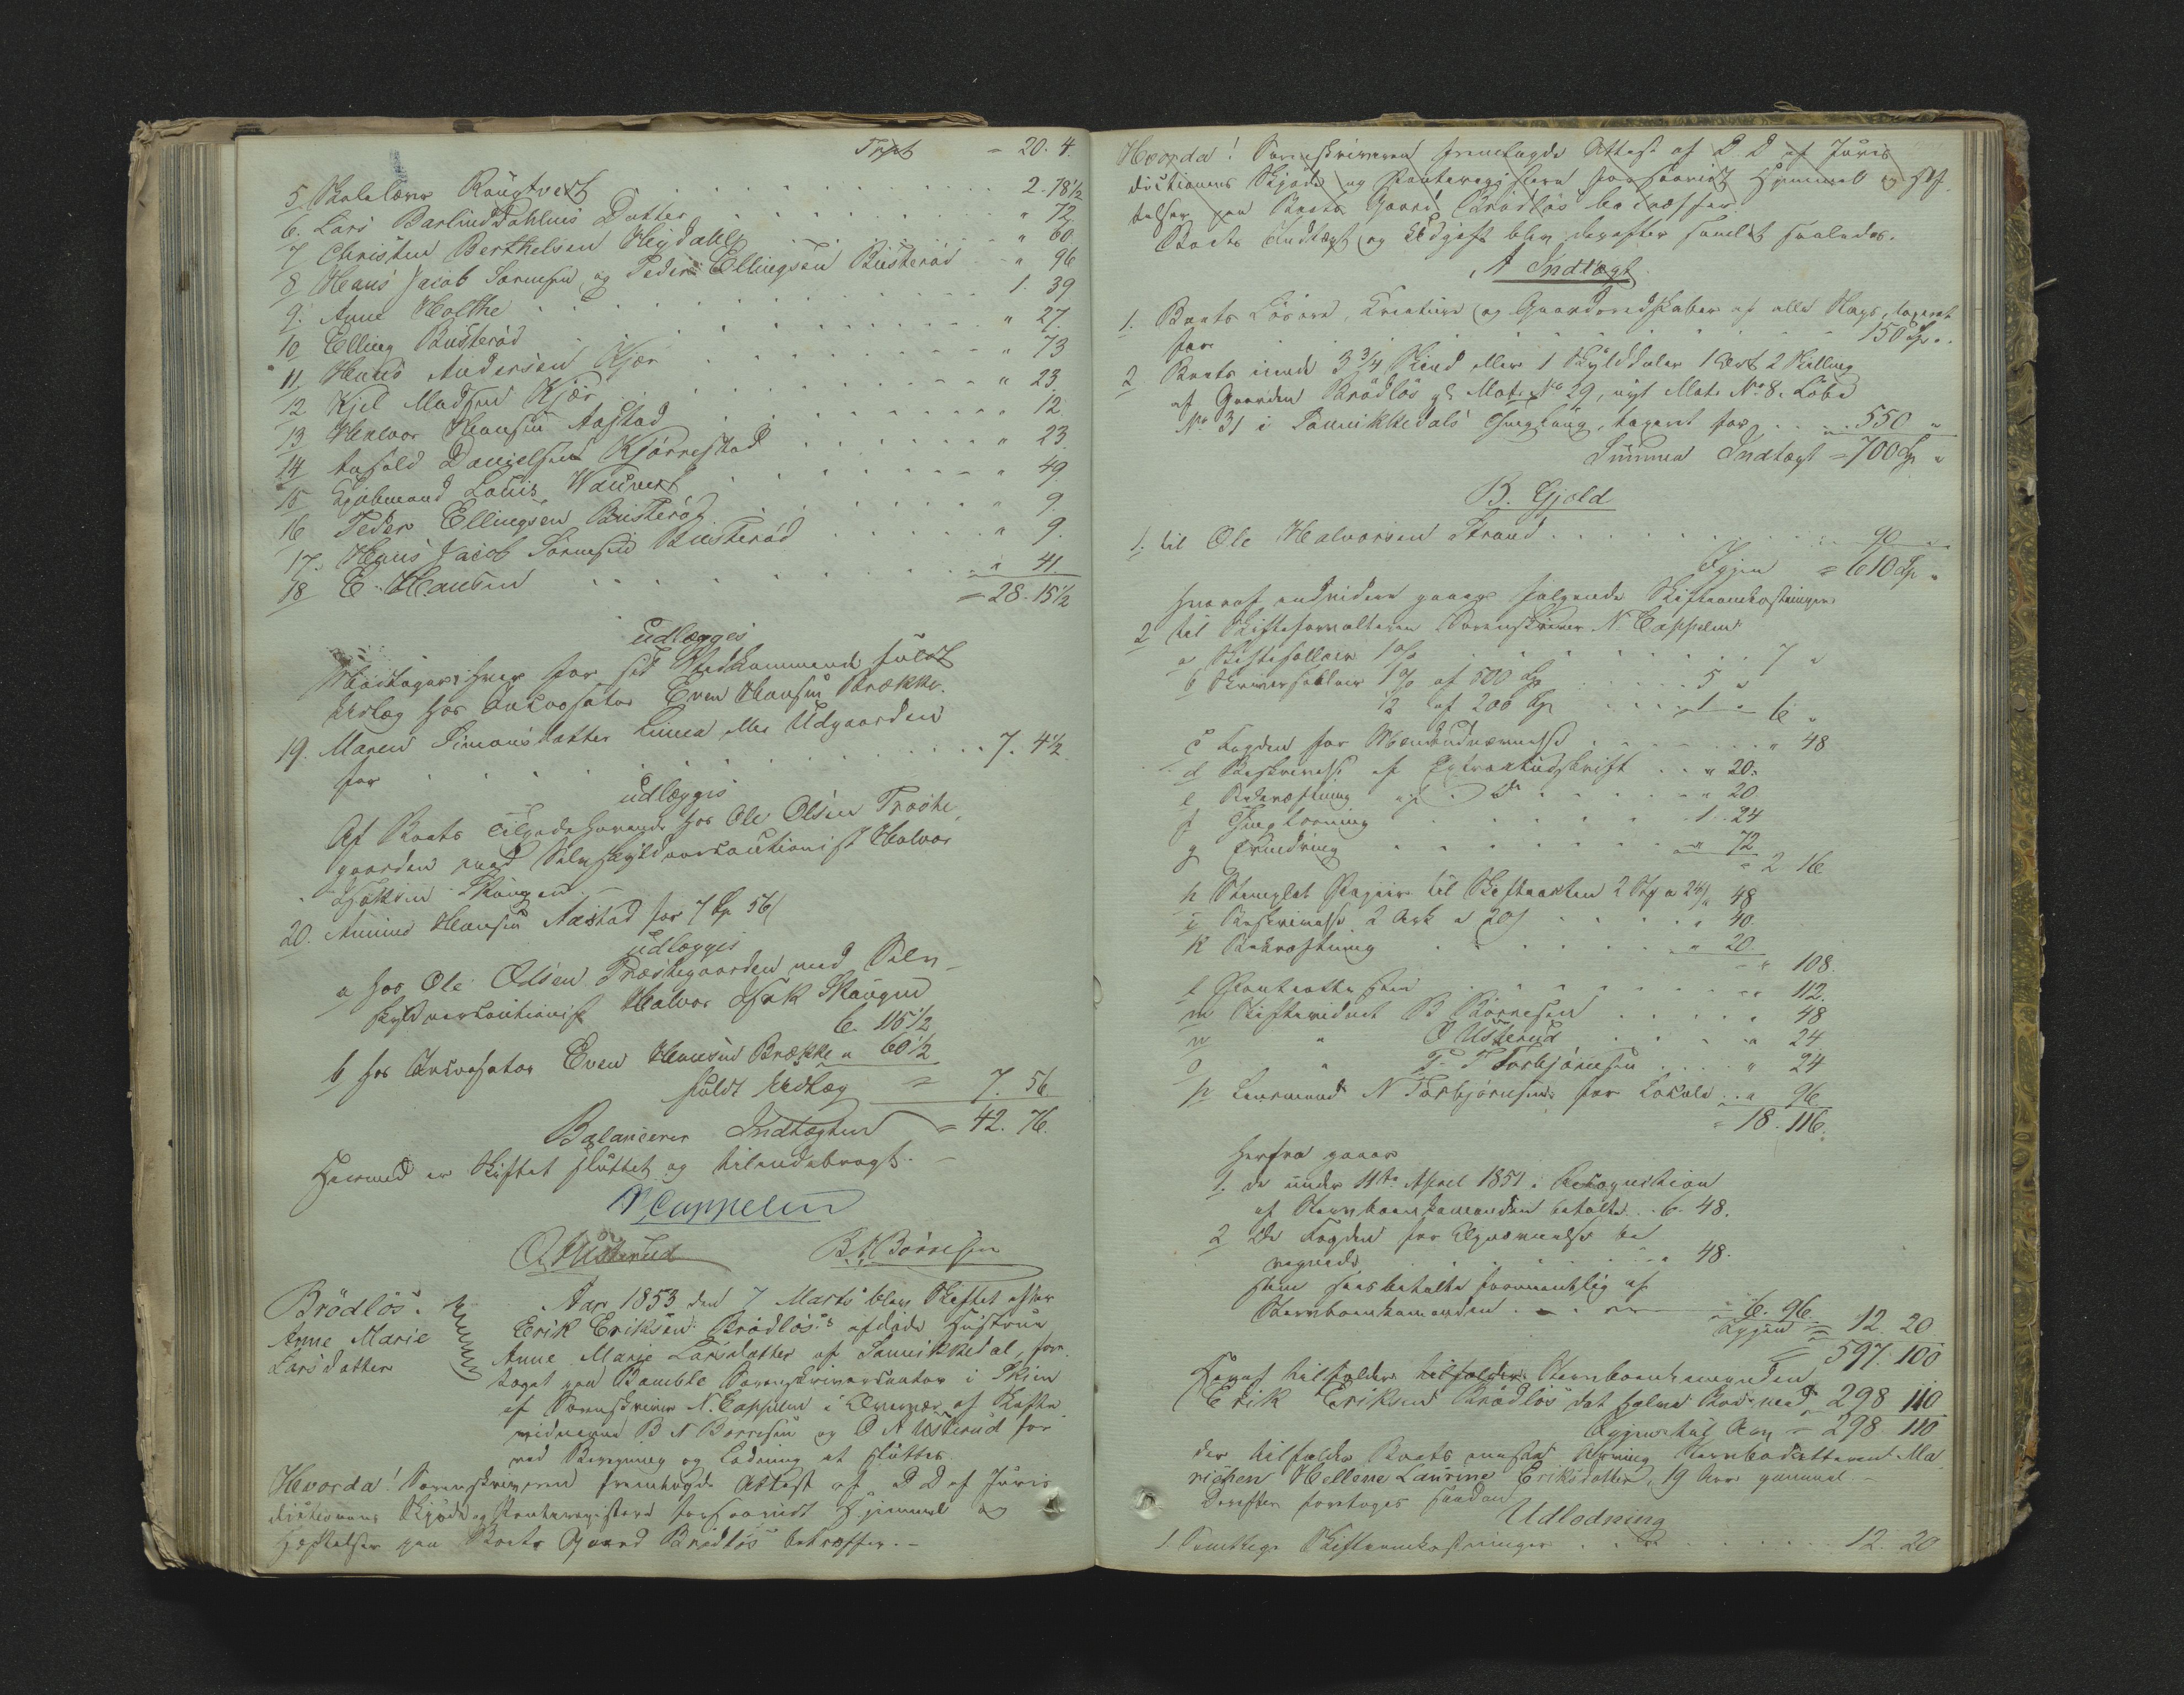 Trpt = 20. 4.
5 Skolelærer Raugtvedt . . . 2. 78 1/2
6. Lars Barlinddahlens Datter . . . " 72
7 Christen Berthelsen Heydahl . . . " 60
8 Hans Jacob Sørensen og Peder Ellingsen Busterød . . " 96
9. Anne Holthe . . . 1. 39
10 Elling Busterød . . . " 27.
11. Hans Andersen Kjær . . . " 73
12 Kjel Madsen Kjær . . . " 23.
13 Halvor Hansen Aastad . . . " 12.
14 Anfeld Danielsen Kjørrestad . . . " 23
15 Kjøbmand Louis Wauvert . . . " 49.
16 Peder Ellingsen Busterød . . . " 9.
17. Hans Jacob Sørensen Busterød . . . " 9.
18 E. Hansen . . . " 41.
= 28. 15 1/2
udlægges
Modtager enhver for sit Vedkommende fuldt
Udlæg hos Auctionsfører Even Hansen Brække.
19. Maren Simonsdatter Linea eller Udgaarden
for . . . 7. 4 1/2
udlægges
Af Boets Tilgodehavende hos Ole Olsen Præste-
gaarden med Selvskyldnercautionist Halvor
Isaksen Skougen. -
20. Anund Hansen Aastad for 7 Sp 56 s
udlægges
a hos Ole Olsen Præstegaarden med Selv-
skyldnercautionist Halvor Isak Skougen
6. 115 1/2
b hos Auctionsfører Even Hansen Brække " 60 1/2
fuldt Udlæg = 7. 56
Balancerer Indtægten = 42. 76.
Hermed er Skiftet sluttet og tilendebragt. -
N. Cappelen
O. N. Usterud B. N. Børresen
Brödlös.
Anne Marie
Larsdatter
Aar 1853 den 7 Marts blev Skiftet efter
Erik Eriksen Brödlös's afdøde Hustrue
Anne Marie Larsdatter af Sannikedal, fore-
taget paa Bamble Sorenskrivercontor i Skien
af Sorenskriver N. Cappelen i Overvær af Skifte
vidnerne B N Børresen og O N Usterud for
ved Beregning og Lodning at sluttes.
Hvorda! Sorenskriveren fremlagde Attest af D D af Juris-
dictionens Skjøde og Panteregistere forsaavidt Hjemmel og
Hæftelser paa Boets Gaard Brödlös betræffer. -
Hvorda! Sorenskriveren fremlagde Attest af D D af Juris
dictionens Skjøde og Panteregistere forsaavidt Hjemmel og Hæf-
telser paa Boets Gaard Brödlös betræffer
Boets Indtægt og Udgift blev derefter samlet saaledes.
A Indtægt
1. Boets Løsøre, Creature og Gaardsredskaber af alle Slags, taxeret
for . . . 150 Sp. "
2 Boets iende 3 3/4 Skind eller 1 Skylddaler 1 Ort 2 Skilling
af Gaarden Brödlös gl. Matr. No 29, nyt Matr. No 8. Løbe
No 31 i Sannikkedals Thinglaug, taxeret for . . . 550 "
Summa Indtægt = 700 Sp "
B. Gjæld
1. til Ole Halvorsen Strand . . . 90 "
Igjen = 610 Sp "
Hvoraf endvidere gaaer følgende Skifteomkostninger
2 til Skifteforvalteren Sorenskriver N. Cappelen
a Skiftesallair 1 % . . . 7 "
b Skriversallair 1 % af 500 Sp . . . 5 "
1/2 af 200 Sp . . . 1 " 6 "
c Fogden for Mændsudnævnelse . . . " 48
d Beskrivelse af Extractudskrift . . " 20.
e Bekræftning af Do . . . " 20
f Thinglæsning . . . 1. 24
g Erindring . . . " 72
= 2 16
h Stemplet Papir til Skifteacten 2 Stk a 24 s " 48
i Beskrivelse 2 Ark a 20 s . . . " 40.
k Bekræftning . . . " 20
- " 108.
l Pantattesten . . . " 112.
m Skiftevidnet B Børresen . . . " 48
n " O Usterud . . . " 24
o " T. T Torbjörnsen . . . " 24
p Lensmand N Torbjørnsen for Lokale . . " 96.
= 18. 116.
Herfra gaaer
1. de under 11te April 1851 i Requisition
af Stervboenkemanden betalte . . 6. 48.
2 Do Fogden for Opnævnelse be
regnede . . . " 48.
som sees betalte forventlig af
Stervboenkemanden . . . 6. 96.
Igjen = 12. 20
= 597. 100
Heraf tilfalder tilfalder Stervboenkemanden
Erik Eriksen Brödlös det halve Bo med = 298 110
Igjen til Arv = 298. 110
der tilfalder Boets eneste Arving Stervbodatteren Ma
richen Hellene Laurine Eriksdatter, 19 Aar gammel. -
Derefter foretoges saadan
Udlodning
1 Samtlige Skifteomkostninger . . . 12. 20